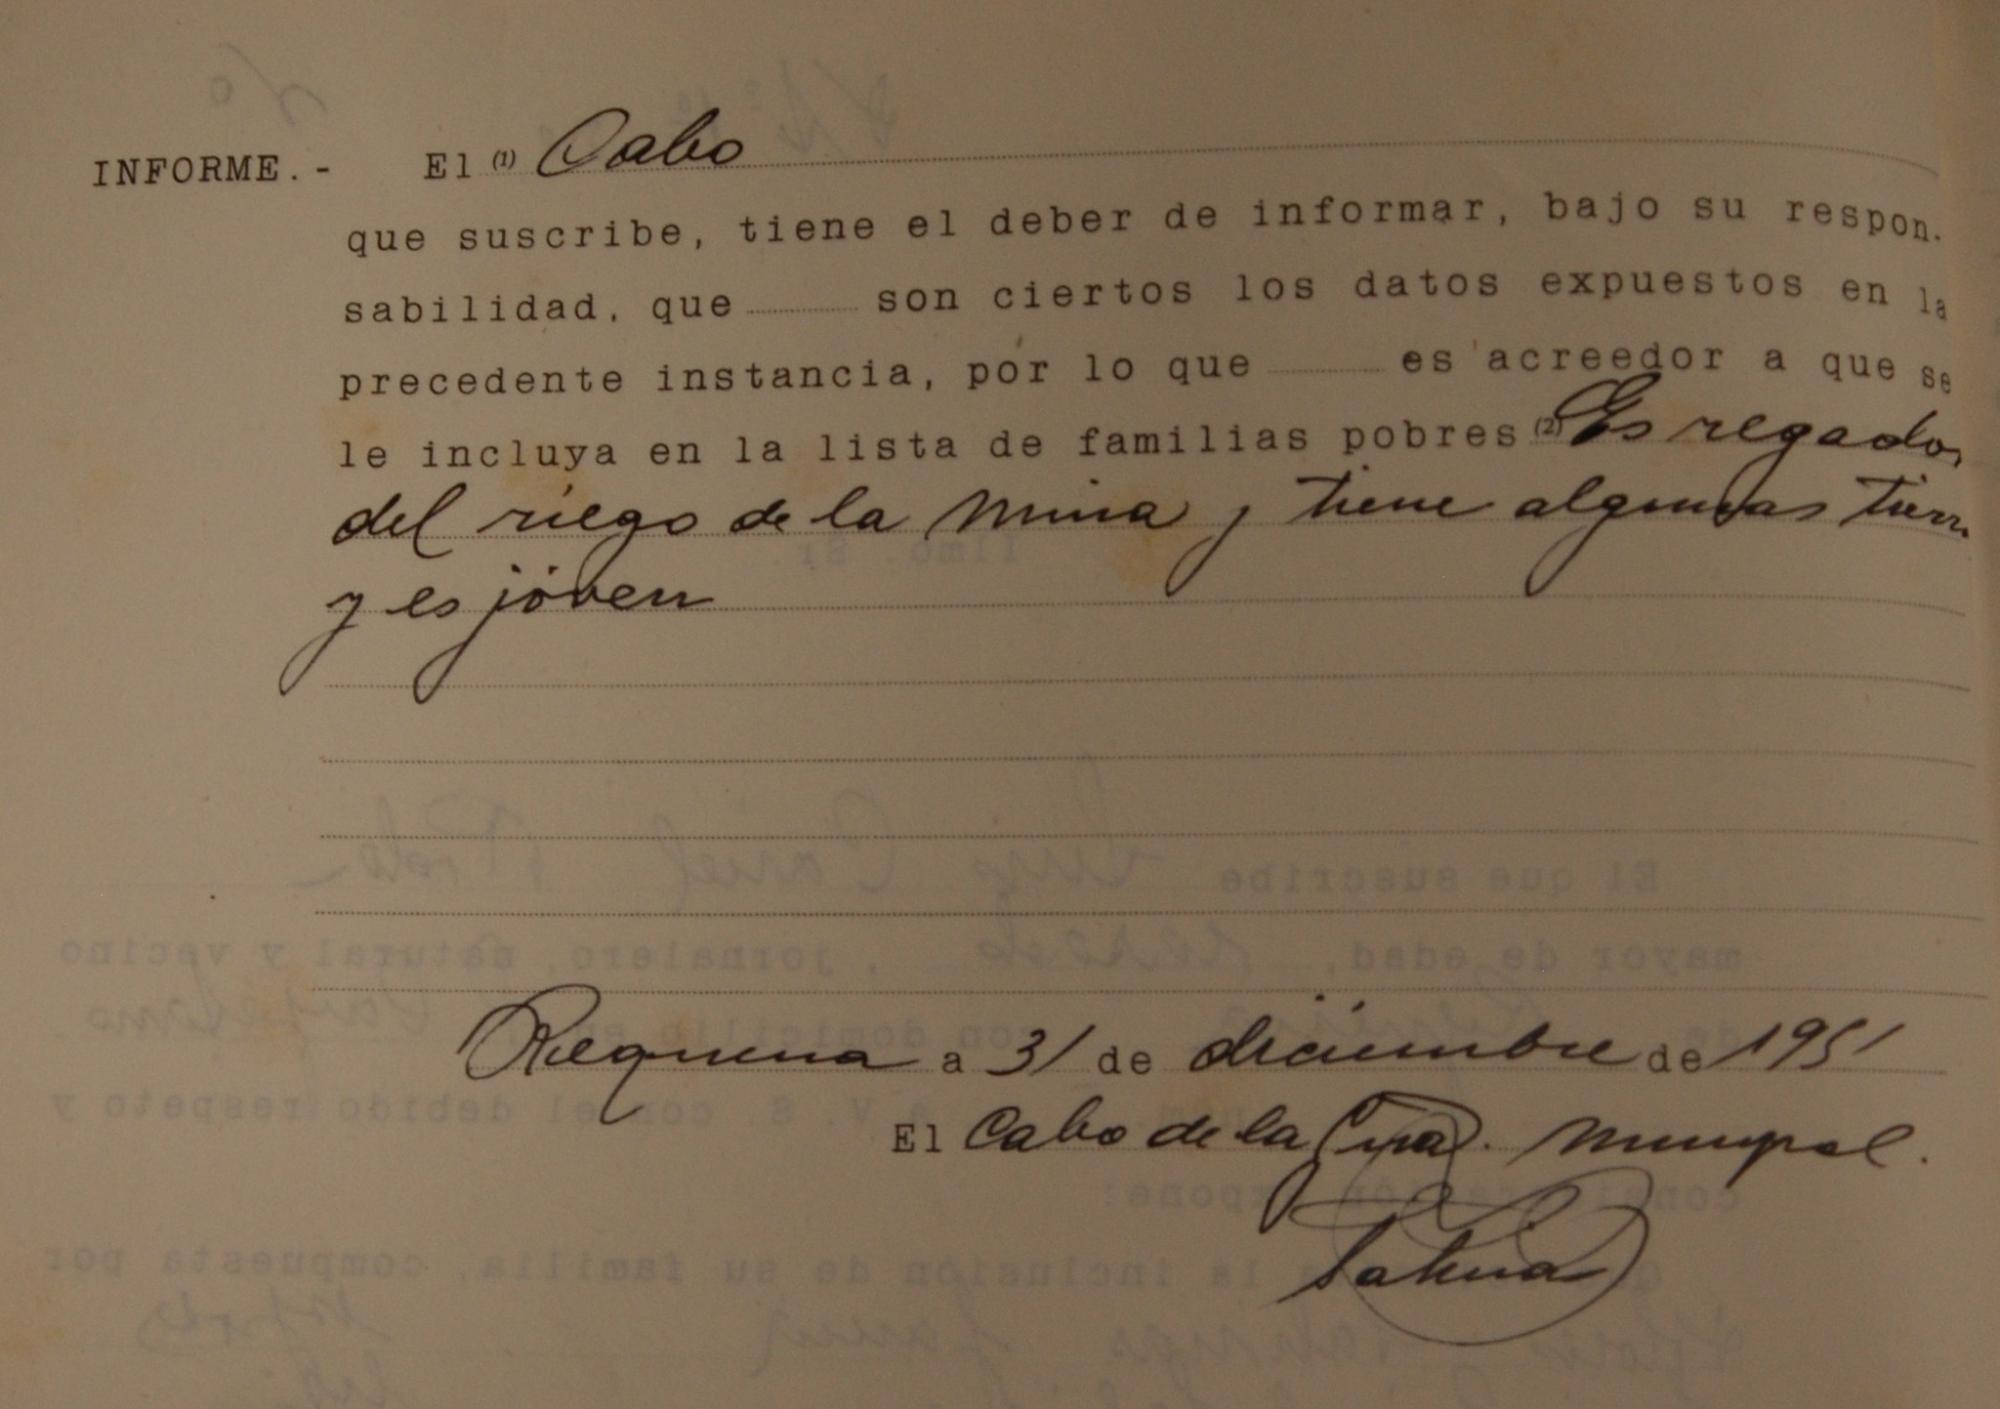 INFORME.- El (1) Cabo
que suscribe, tiene el deber de informar, bajo su respon.
sabilidad, que son ciertos los datos expuestos en la
precedente instancia, por lo que es acreedor a que se
le incluya en la lista de familias pobres (2) Es regador
del riego de la Mina y tiene algunas tierr
y es jóven
Requena a 31 de diciembre de 1951
El Cabo de la Gria. Municpal.